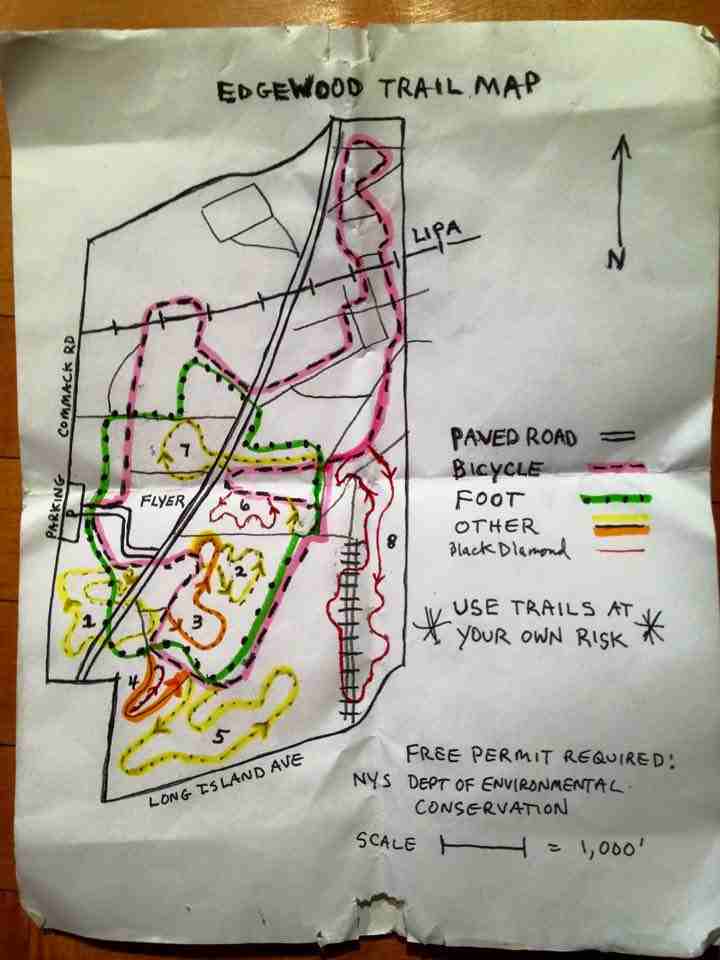 EDGEWOOD TRAIL MAP
LIPA
N
COMMACK RD
PAVED ROAD
BICYCLE
FOOT
OTHER
Black Diamond
7
PARKING
P
FLYER
6
8
2
1
3
USE TRAILS AT
YOUR OWN RISK
4
5
LONG ISLAND AVE
FREE PERMIT REQUIRED:
NYS DEPT OF ENVIRONMENTAL
CONSERVATION
SCALE = 1,000'